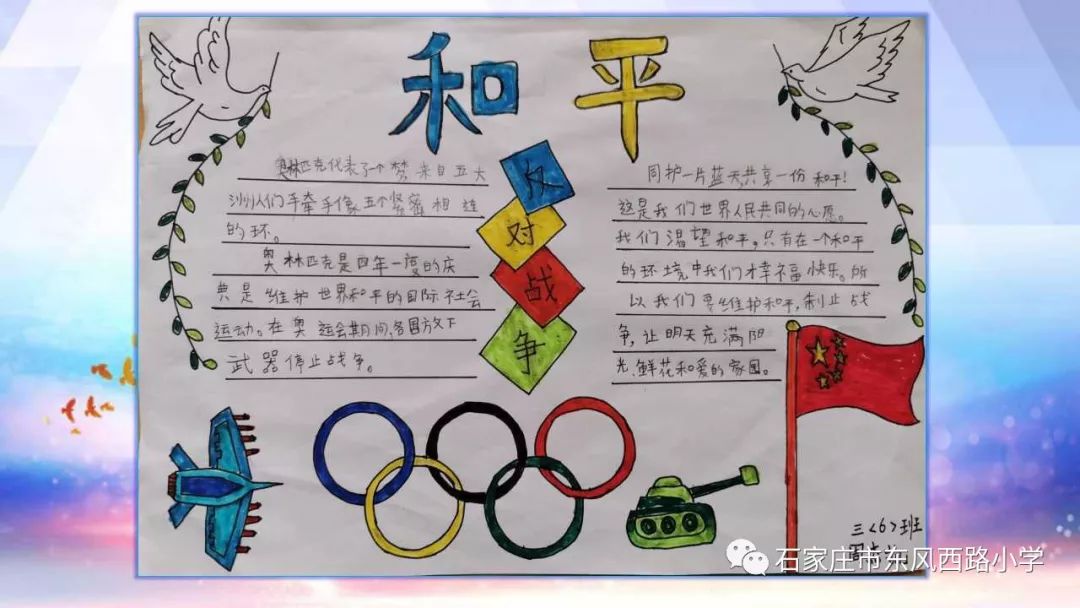 和平
奥林匹克代表了一个梦,来自五大
洲人们手牵手像五个紧密相连
的环。
奥林匹克是四年一度的庆
典是维护世界和平的国际社会
运动。在奥运会期间,各国放下
武器停止战争。
反
对
战
争
同护一片蓝天,共享一份和平!
这是我们世界人民共同的心愿。
我们渴望和平,只有在一个和平
的环境中我们才幸福快乐。所
以我们要维护和平,制止战
争,让明天充满阳
光、鲜花和爱的家园。
三〈6〉班
石家庄市东风西路小学